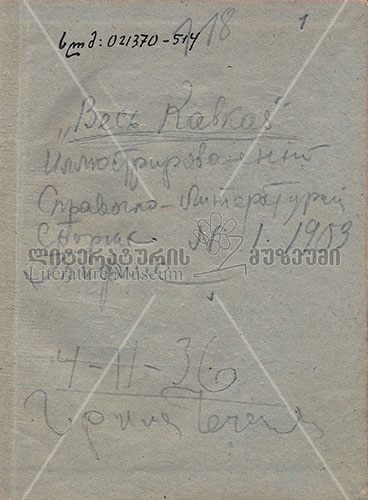 სლმ: 021370-514
118
1
„Весь Кавказ"
Иллюстрированный
Справочно-Литературный
Сборник № 1. 1903
ლიტერატურის მუზეუმი
Literature Museum
4-11-36